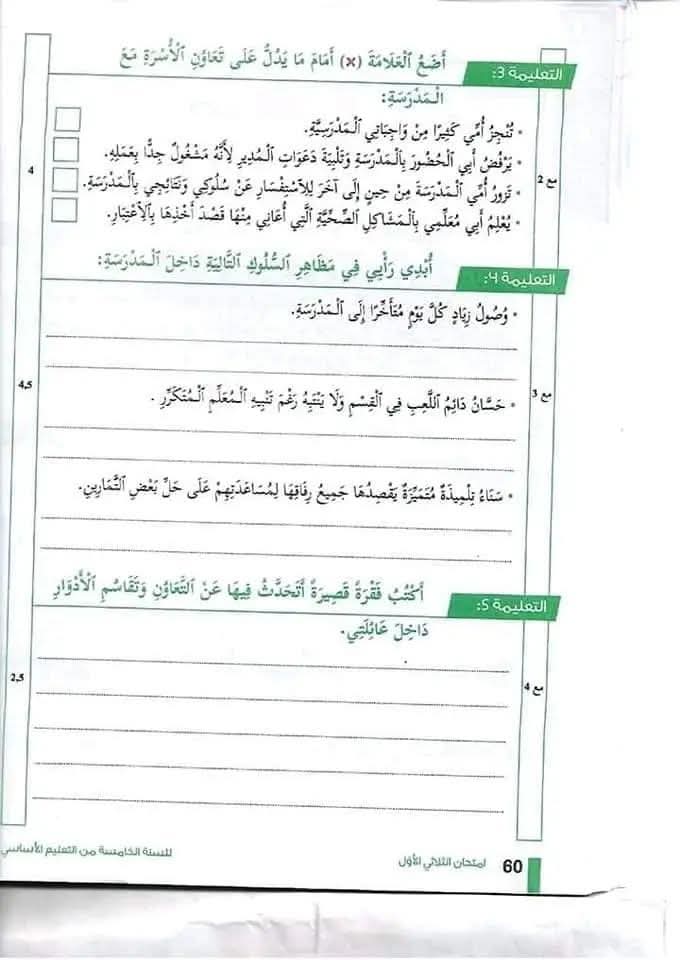 التعليمة 3: أَضَعُ ٱلْعَلَامَةَ (x) أَمَامَ مَا يَدُلُّ عَلَى تَعَاوُنِ ٱلْأُسْرَةِ مَعَ
ٱلْمَدْرَسَةِ:
• تُنْجِزُ أُمِّي كَثِيرًا مِنْ وَاجِبَاتِي ٱلْمَدْرَسِيَّةِ.
• يَرْفُضُ أَبِي ٱلْحُضُورَ بِٱلْمَدْرَسَةِ وَتَلْبِيَةَ دَعَوَاتِ ٱلْمُدِيرِ لِأَنَّهُ مَشْغُولٌ جِدًّا بِعَمَلِهِ.
مع 2
4
• تَزُورُ أُمِّي ٱلْمَدْرَسَةَ مِنْ حِينٍ إِلَى آخَرَ لِلِٱسْتِفْسَارِ عَنْ سُلُوكِي وَنَتَائِجِي بِٱلْمَدْرَسَةِ.
• يُعْلِمُ أَبِي مُعَلِّمِي بِٱلْمَشَاكِلِ ٱلصِّحِّيَّةِ ٱلَّتِي أُعَانِي مِنْهَا قَصْدَ أَخْذِهَا بِٱلِٱعْتِبَارِ.
التعليمة 4: أُبْدِي رَأْيِي فِي مَظَاهِرِ ٱلسُّلُوكِ ٱلتَّالِيَةِ دَاخِلَ ٱلْمَدْرَسَةِ:
• وُصُولُ زِيَادٍ كُلَّ يَوْمٍ مُتَأَخِّرًا إِلَى ٱلْمَدْرَسَةِ.
مع 3
4,5
• حَسَّانُ دَائِمُ ٱللَّعِبِ فِي ٱلْقِسْمِ وَلَا يَنْتَبِهُ رَغْمَ تَنْبِيهِ ٱلْمُعَلِّمِ ٱلْمُتَكَرِّرِ .
• سَنَاءُ تِلْمِيذَةٌ مُتَمَيِّزَةٌ يَقْصِدُهَا جَمِيعُ رِفَاقِهَا لِمُسَاعَدَتِهِمْ عَلَى حَلِّ بَعْضِ ٱلتَّمَارِينِ.
التعليمة 5: أَكْتُبُ فَقْرَةً قَصِيرَةً أَتَحَدَّثُ فِيهَا عَنْ ٱلتَّعَاوُنِ وَتَقَاسُمِ ٱلْأَدْوَارِ
دَاخِلَ عَائِلَتِي.
مع 4
2,5
60 امتحان الثلاثي الأول
للسنة الخامسة من التعليم الأساسي